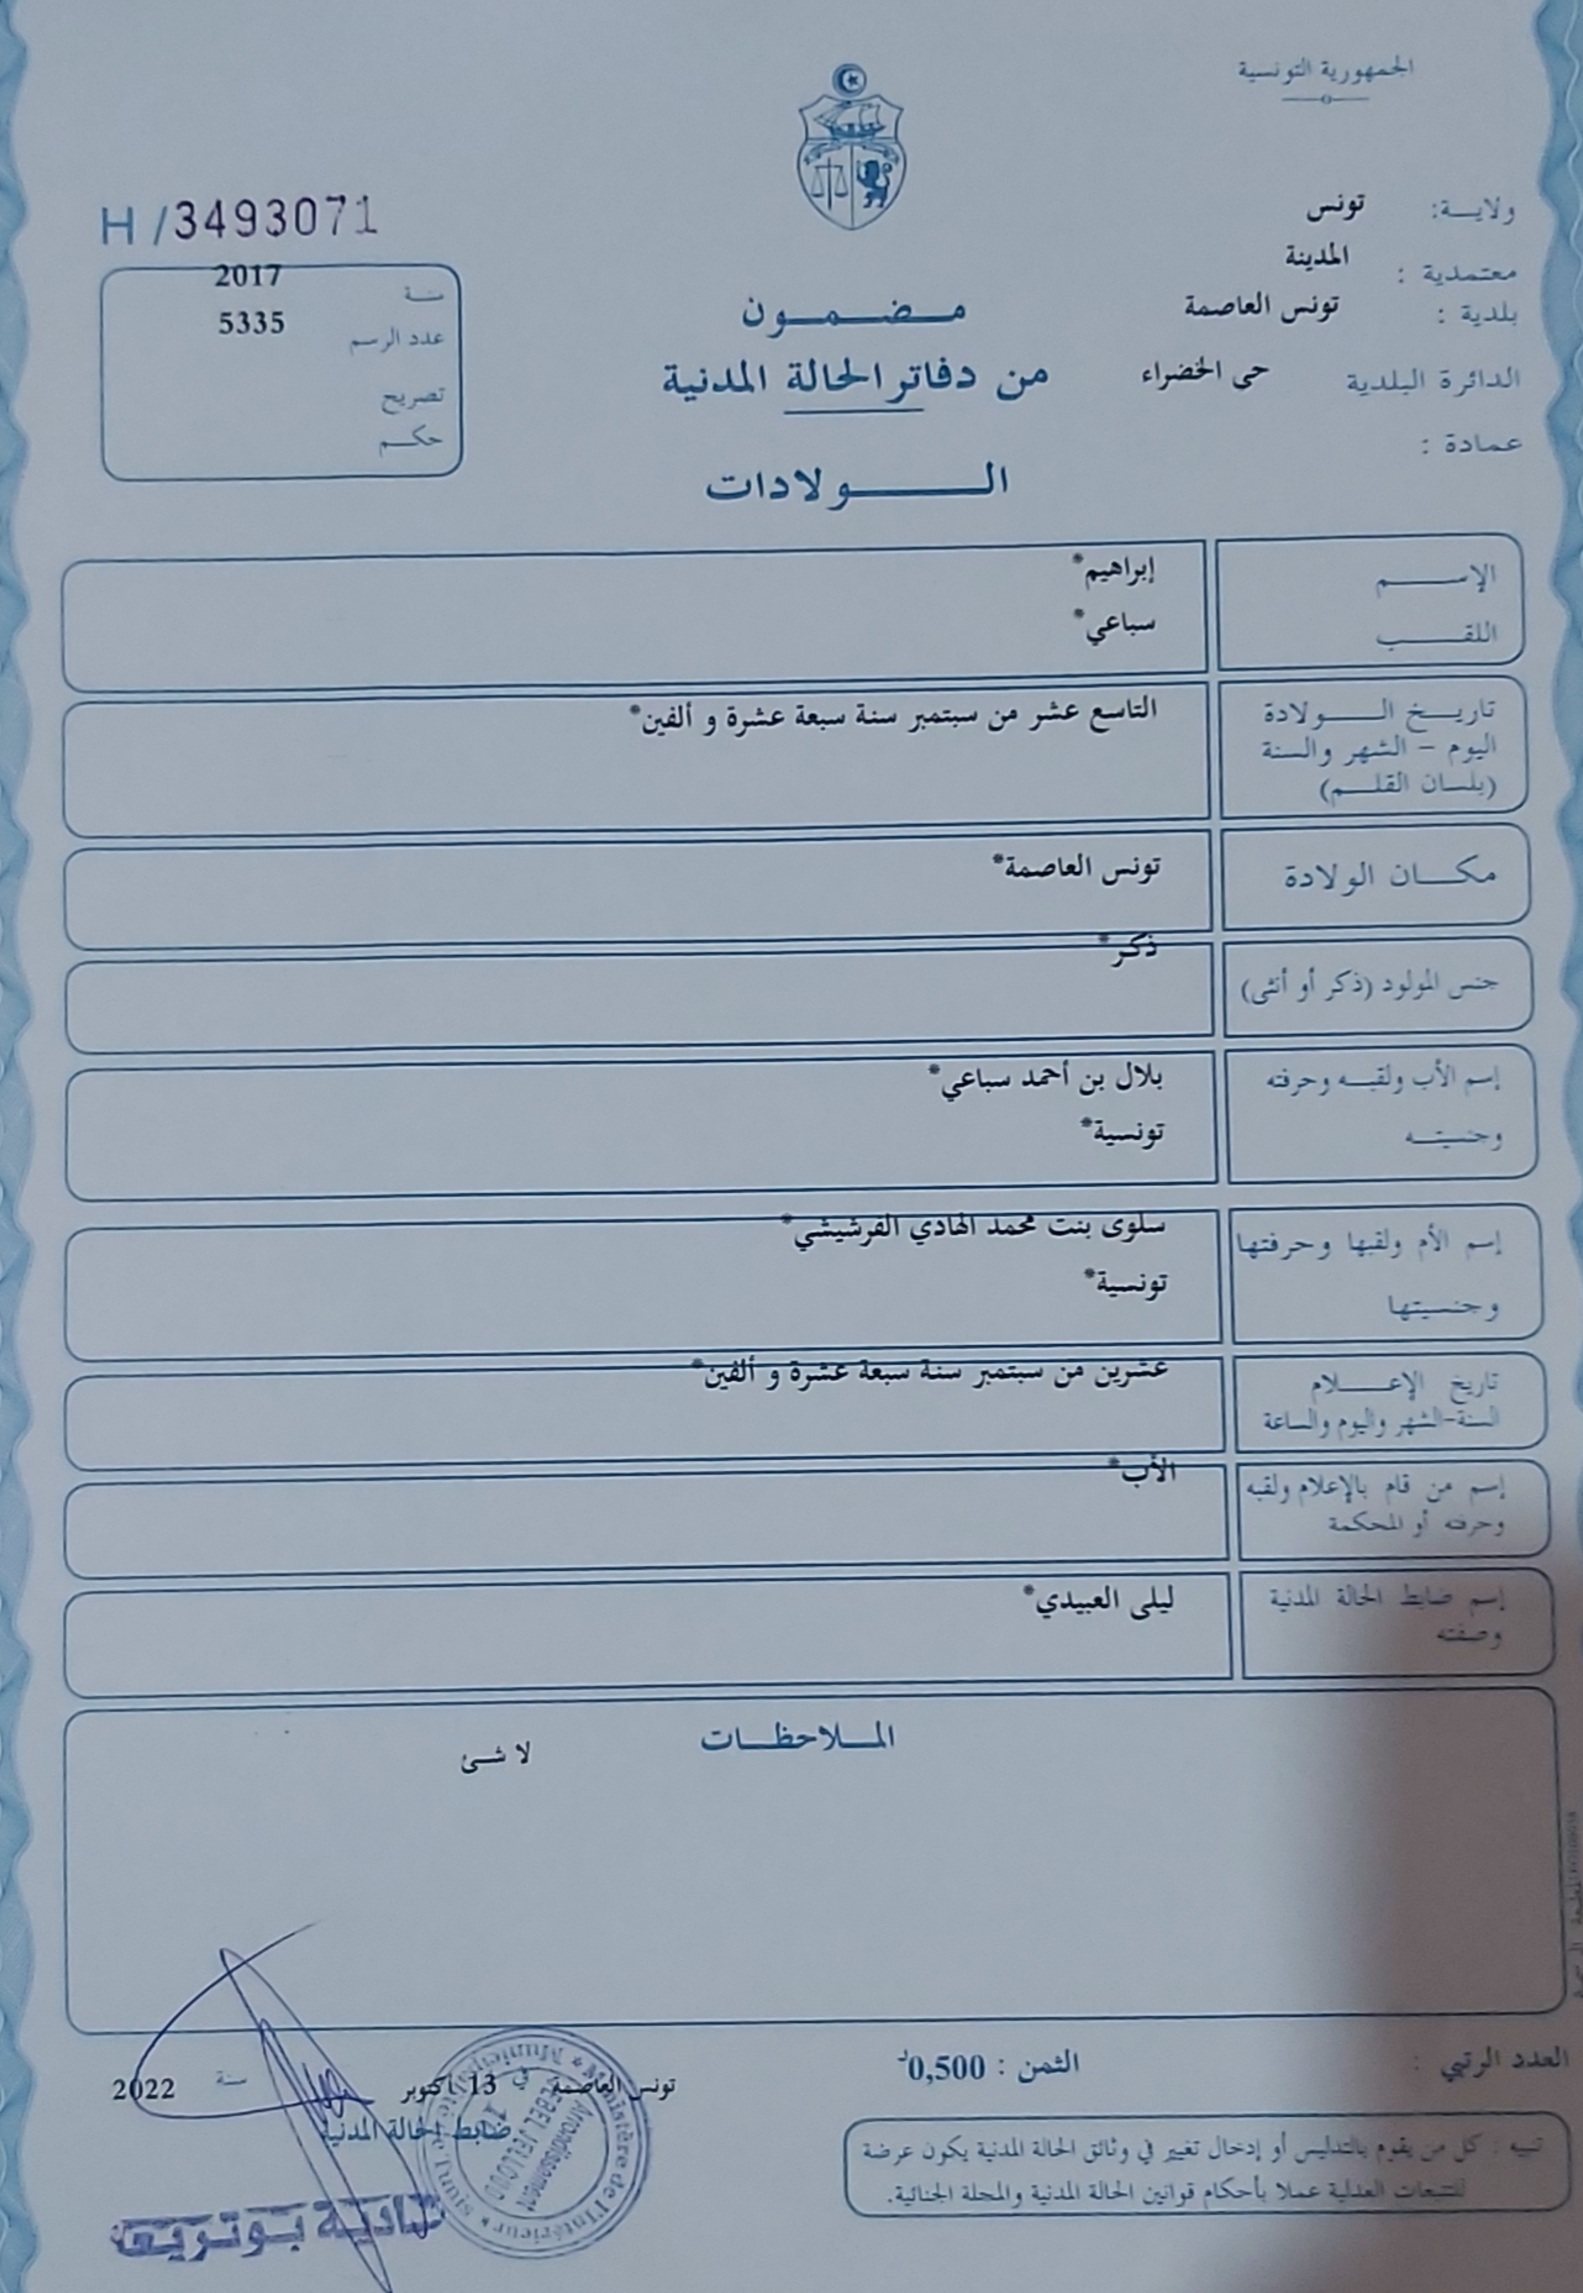 الجمهورية التونسية
ولاية: تونس
معتمدية : المدينة
بلدية : تونس العاصمة
الدائرة البلدية حى الخضراء
عمادة :
H / 3493071
سنة 2017
عدد الرسم 5335
تصريح
حكم
مضمون
من دفاتر الحالة المدنية
الولادات
الإسم إبراهيم*
اللقب سباعي*
تاريخ الولادة التاسع عشر من سبتمبر سنة سبعة عشرة و ألفين*
اليوم - الشهر والسنة
(بلسان القلم)
مكان الولادة تونس العاصمة*
جنس المولود (ذكر أو أنثى) ذكر*
إسم الأب ولقبه وحرفته بلال بن أحمد سباعي*
وجنسيته تونسية*
إسم الأم ولقبها وحرفتها سلوى بنت محمد الهادي الفرشيشي*
وجنسيتها تونسية*
تاريخ الإعلام عشرين من سبتمبر سنة سبعة عشرة و ألفين*
السنة-الشهر واليوم والساعة
إسم من قام بالإعلام ولقبه الأب*
وحرفته أو المحكمة
إسم ضابط الحالة المدنية ليلى العبيدي*
وصفته
الملاحظات
لا شئ
العدد الرتبي :
الثمن : 0,500د
تونس العاصمة في 13 أكتوبر سنة 2022
ضابط الحالة المدنية
تنبيه : كل من يقوم بالتدليس أو إدخال تغيير في وثائق الحالة المدنية يكون عرضة
للتتبعات العدلية عملا بأحكام قوانين الحالة المدنية والمجلة الجنائية.
Ministère de l'Intérieur
Arrondissement
JEBEL JELLOUD